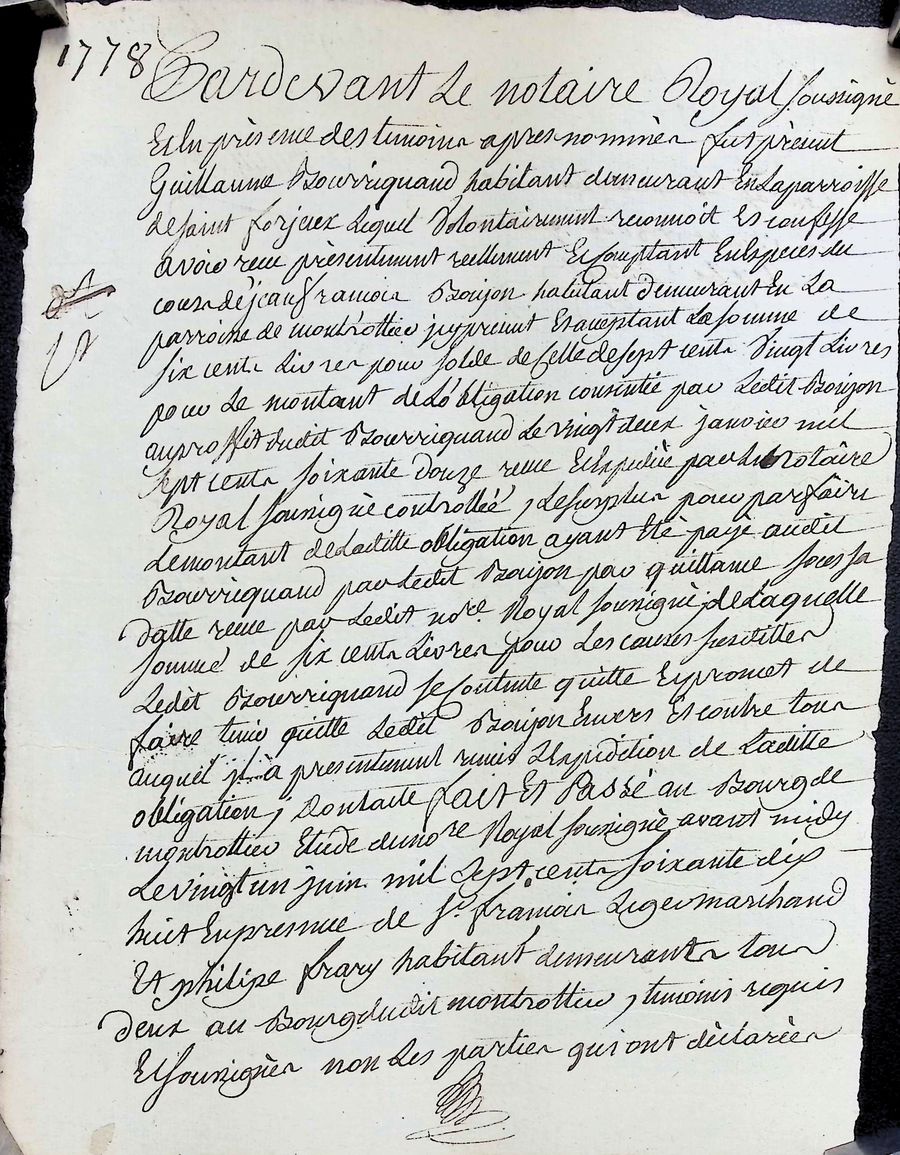 1778
Pardevant Le notaire Royal soussignè
Et En prèsence des temoins apres nommèes fut prèsent
Guillaume Bourriquand habitant demeurant En La parroisse
de saint forjeux Lequel Volontairement reconnoit Et confesse
avoir receu prèsentement reellement Et Comptant En Espèces du
cours de jean françois Boujon habitant demeurant En La
parroisse de montrottier jcy present Et aceptant La somme de
six cents Livres pour solde de Celle de sept cents Vingt Livres
pour Le montant de L'obligation consentie par Ledit Boujon
au proffit dudit Bourriquand Le vingt deux janvier mil
sept cents soixante douze receue Et Expediée par Le notaire
Royal soussignè controllée, Le surplus pour parfaire
Le montant de Laditte obligation ayant Eté payè audit
Bourriquand par Ledit Boujon par quittance sous sa
datte receue par Ledit nore. Royal soussignè; de Laquelle
somme de six cents Livres pour Les causes susdittes
Ledit Bourriquand se Contente quitte Et promet de
faire tenir quitte Ledit Boujon Envers Et contre tous
auquel jl à presentement remis L'Expedition de Laditte
obligation; Dont acte fait Et Passé au Bourg de
montrottier Etude du nore Royal soussignè avant midy
Le vingt un juin mil sept cents soixante dix
huit En presence de sr. françois Leger marchand
Et philipe frary habitant demeurants tous
deux au Bourg dudit montrottier, temoins requis
Et soussignès non Les parties qui ont dèclarèes